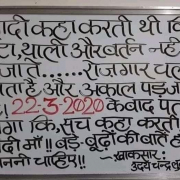 दादी कहा करती थी कि
टा, थाली और बर्तन नहीं
जाते...... रोजगार चल
जाता है और अकाल पड़ जा
22-3-2020 के बाद पत
गा कि, सच कहा करती
दादी माँ!! बड़े-बूढ़ों की बातें ह
माननी चाहिए!!
खाकसार:
उदय चन्द्र